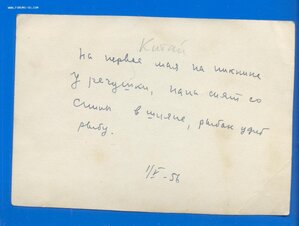 Китай
На первое мая на пикнике
у речушки, папа снят со
спины в шляпе, рыбак удит
рыбу.
1/V-56